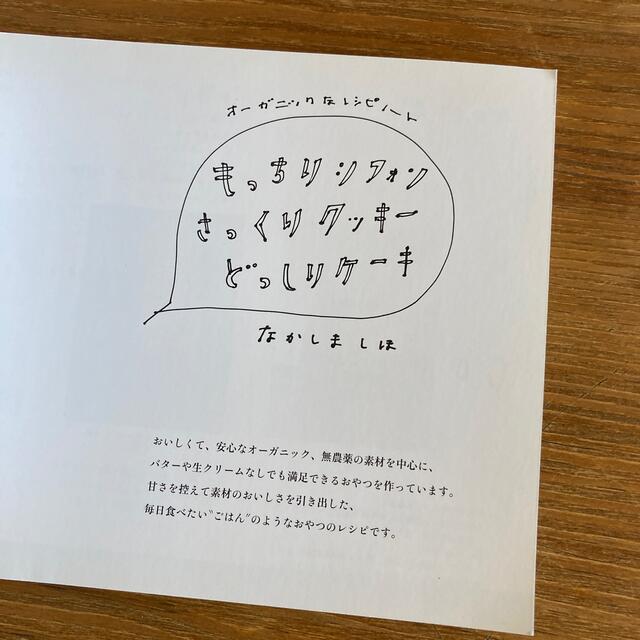 オーガニックなレシピノート
もっちりシフォン
さっくりクッキー
どっしりケーキ
なかしましほ
おいしくて、安心なオーガニック、無農薬の素材を中心に、
バターや生クリームなしでも満足できるおやつを作っています。
甘さを控えて素材のおいしさを引き出した、
毎日食べたい〝ごはん〟のようなおやつのレシピです。